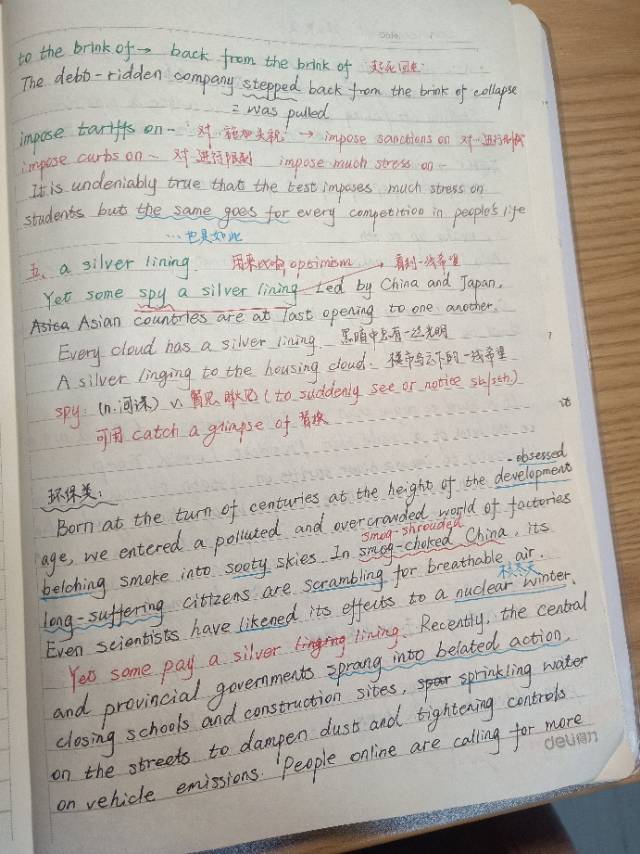 Date.
to the brink of → back from the brink of 起死回生
The debt-ridden company stepped back from the brink of collapse
= was pulled
impose tariffs on~ 对~施加关税 → impose sanctions on 对~进行制裁
impose curbs on~ 对~进行限制 impose much stress on~
It is undeniably true that the test imposes much stress on
students but the same goes for every competition in people's life
...也是如此
五、a silver lining. 用来 optimism → 看到一线希望
Yet some spy a silver lining Led by China and Japan,
Asica Asian countries are at last opening to one another.
Every cloud has a silver lining. 黑暗中总有一丝光明
A silver linging to the housing cloud. 楼市乌云下的一线希望
spy: (n.间谍) v. 瞥见 瞅见 (to suddenly see or notice sb/sth.)
可用 catch a glimpse of 替换
it
环保类:
-obsessed
Born at the turn of centuries at the height of the development
age, we entered a polluted and overcrowded world of factories
belching smoke into sooty skies. In smog-choked China, its
smog-shrouded
long-suffering citizens are scrambling for breathable air.
核冬天
Even scientists have likened its effects to a nuclear winter.
Yet some pay a silver linging lining. Recently, the central
and provincial governments sprang into belated action,
closing schools and construction sites, spar sprinkling water
on the streets to dampen dust and tightening controls
on vehicle emissions. People online are calling for more
deli得力